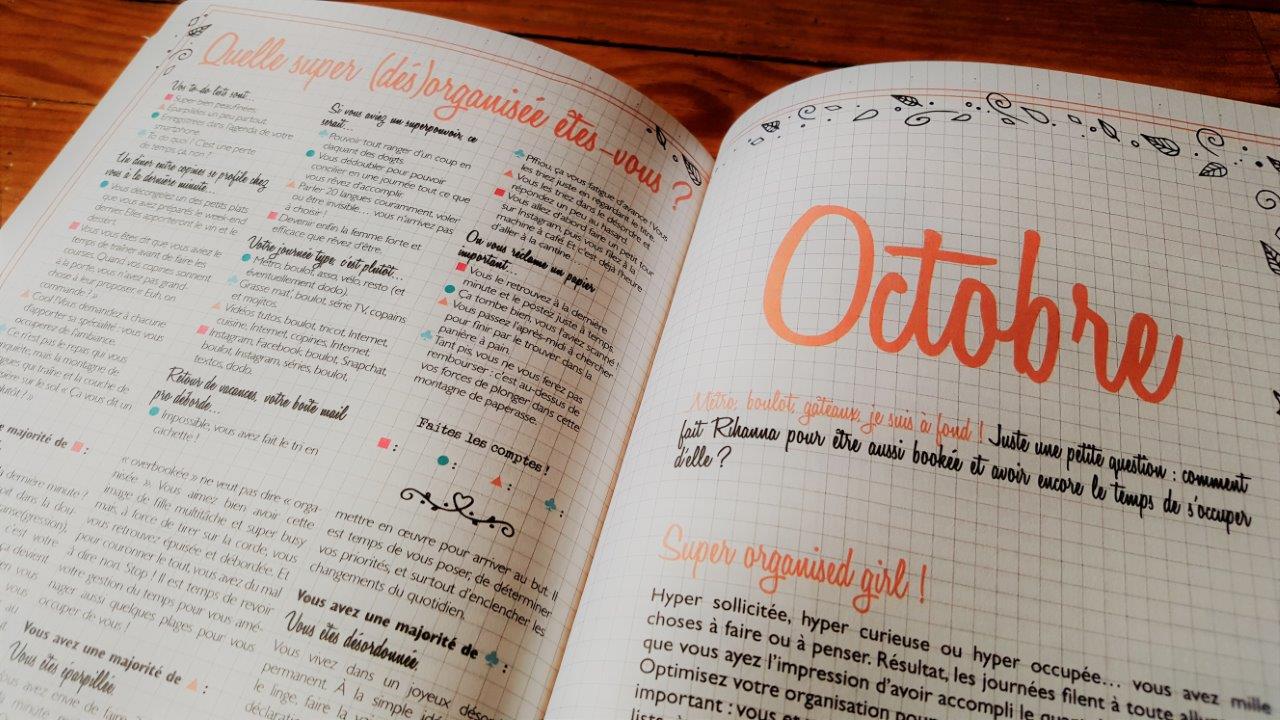 Quelle super (dés)organisée êtes-vous ?
Vos to-do lists sont...
Super bien peaufinées.
Éparpillées un peu partout.
Enregistrées dans l'agenda de votre
smartphone.
To do quoi ? C'est une perte
de temps, ça non ?
Un dîner entre copines se profile chez
vous à la dernière minute...
Vous décongelez un des petits plats
que vous avez préparés le week-end
dernier. Elles apporteront le vin et le
dessert.
Vous vous êtes dit que vous aviez le
temps de traîner avant de faire les
courses. Quand vos copines sonnent
à la porte, vous n'avez pas grand-
chose à leur proposer. « Euh, on
commande ? »
Cool ! Vous demandez à chacune
d'apporter sa spécialité : vous vous
occuperez de l'ambiance.
Ce n'est pas le repas qui vous
inquiète, mais la montagne de
qui traîne et la couche de
sur le sol. « Ça vous dit un
Si vous aviez un superpouvoir, ce
serait...
Pouvoir tout ranger d'un coup en
claquant des doigts.
Vous dédoubler pour pouvoir
concilier en une journée tout ce que
vous rêvez d'accomplir.
Parler 20 langues couramment, voler
ou être invisible... vous n'arrivez pas
à choisir !
Devenir enfin la femme forte et
efficace que rêvez d'être.
Votre journée type, c'est plutôt...
Métro, boulot, asso, vélo, resto (et
éventuellement dodo).
Grasse mat', boulot, série TV, copains
et mojitos.
Vidéos tutos, boulot, tricot, Internet,
cuisine, Internet, copines, Internet.
Instagram, Facebook, boulot, Snapchat,
boulot, Instagram, séries, boulot,
textos, dodo.
Retour de vacances, votre boîte mail
pro déborde...
Impossible, vous avez fait le tri en
cachette !
Pffiou, ça vous fatigue d'avance. Vous
les triez juste en regardant le titre.
Vous les triez dans le désordre et
répondez un peu au hasard.
Vous allez d'abord faire un petit tour
sur Instagram, puis vous filez à la
machine à café. Et c'est déjà l'heure
d'aller à la cantine...
On vous réclame un papier
important...
Vous le retrouvez à la dernière
minute et le postez juste à temps.
Ça tombe bien, vous l'aviez scanné !
Vous passez l'après-midi à chercher
pour finir par le trouver dans la
panière à pain.
Tant pis, vous ne vous ferez pas
rembourser : c'est au-dessus de
vos forces de plonger dans cette
montagne de paperasse.
Faites les comptes !
:
:
:
:
majorité de :
dernière minute ?
dans la dou-
c'est votre
devient
« overbookée » ne veut pas dire « orga-
nisée ». Vous aimez bien avoir cette
image de fille multitâche et super busy
mais, à force de tirer sur la corde, vous
vous retrouvez épuisée et débordée. Et
pour couronner le tout, vous avez du mal
à dire non. Stop ! Il est temps de revoir
votre gestion du temps pour vous amé-
nager aussi quelques plages pour vous
occuper de vous !
Vous avez une majorité de :
Vous êtes éparpillée.
Vous avez envie de faire
mettre en œuvre pour arriver au but. Il
est temps de vous poser, de déterminer
vos priorités, et surtout d'enclencher les
changements du quotidien.
Vous avez une majorité de :
Vous êtes désordonnée.
Vous vivez dans un joyeux
permanent. À la simple
le linge, faire la
Octobre
Métro, boulot, gâteaux, je suis à fond ! Juste une petite question : comment
fait Rihanna pour être aussi bookée et avoir encore le temps de s'occuper
d'elle ?
Super organised girl !
Hyper sollicitée, hyper curieuse ou hyper occupée... vous avez mille
choses à faire ou à penser. Résultat, les journées filent à toute
que vous ayez l'impression d'avoir accompli le
Optimisez votre organisation pour
important : vous et